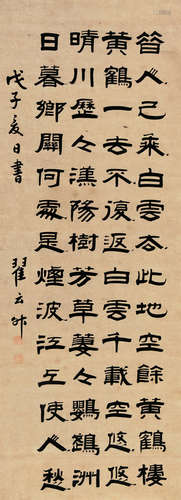 昔人已乘白雲去此地空餘黃鶴樓
黃鶴一去不復返白雲千載空悠悠
晴川歷々漢陽樹芳草萋々鸚鵡洲
日暮鄉關何處是煙波江上使人愁
戊子夏日書
翟云升